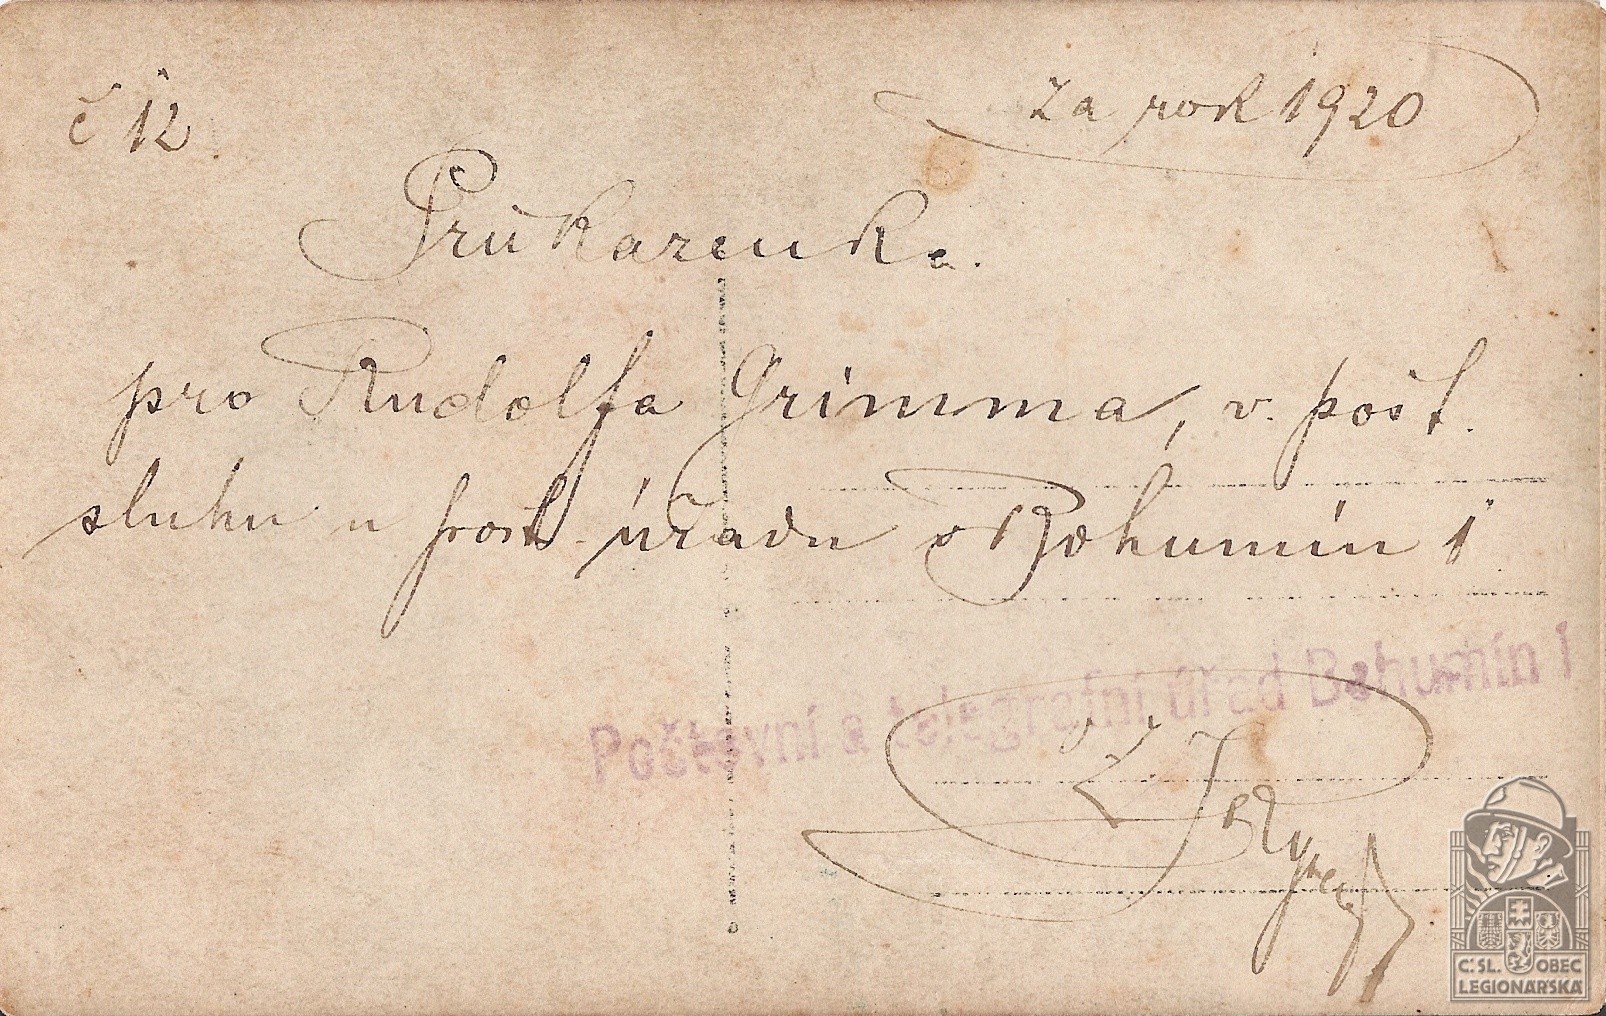 č 12
za rok 1920
Průkazenka.
pro Rudolfa Grimma, v. pošt.
sluhu u pošt. úřadu v Bohumín 1
Poštovní a telegrafní úřad Bohumín 1
Č.SL. OBEC
LEGIONÁŘSKÁ